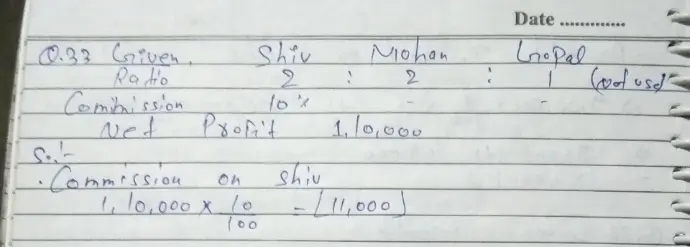 Date .............
Q.33 Given, Shiv Mohan Gopal
Ratio 2 : 2 : 1 (not use)
Commission 10% - -
Net Profit 1,10,000
So:-
. Commission on Shiv
1,10,000 x 10/100 = [11,000]